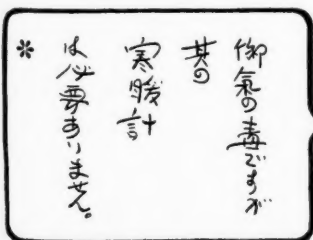 御氣の毒ですが
其の
寒暖計
は必要ありません。
*